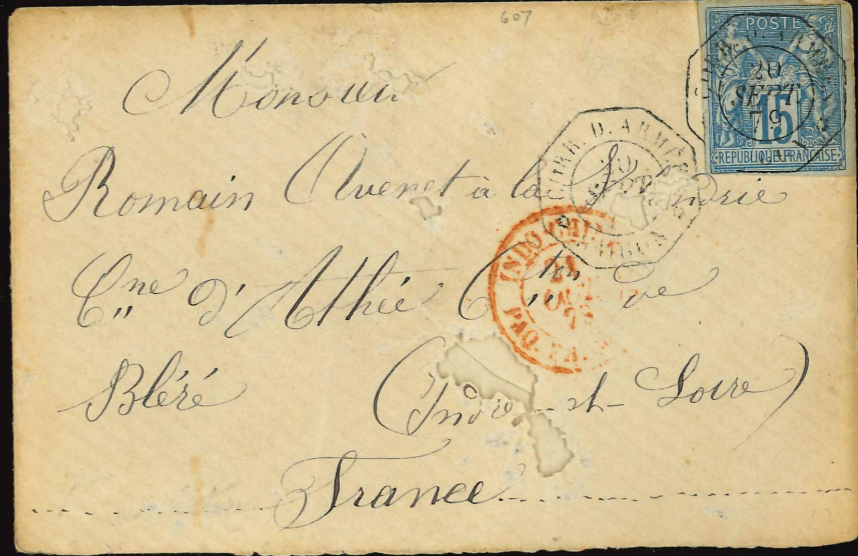 607
POSTES
15
REPUBLIQUE FRANCAISE
CORR. D. ARMÉES
20
SEPT
79
CORR. D. ARMÉES
SAIGON
INDO-CHINE
Monsieur
Romain Avenet à la
Cne d'Athée Cton de
Bléré (Indre-et-Loire)
France